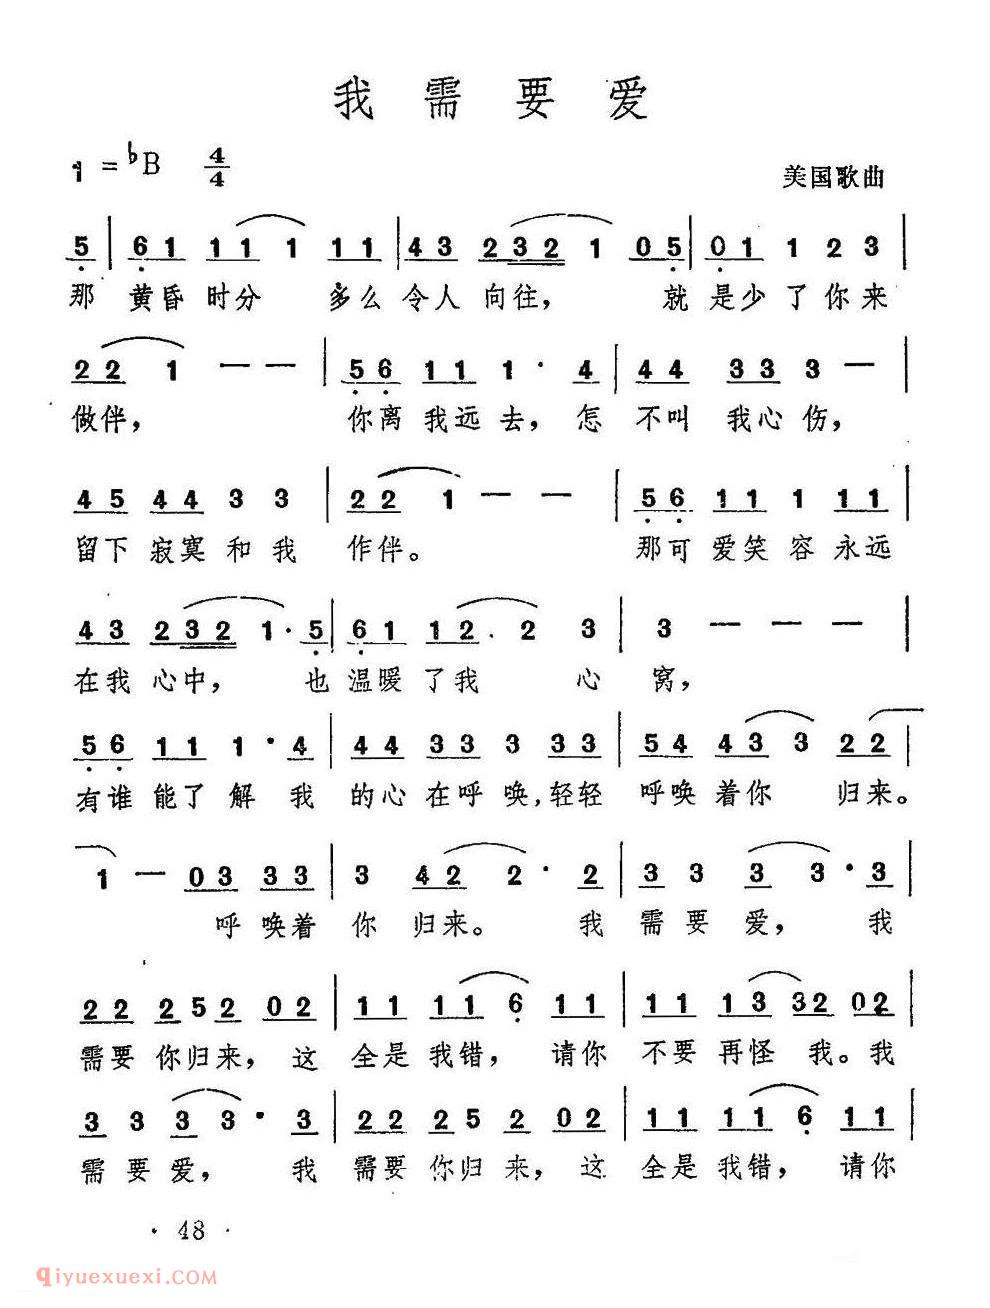 我需要爱
1 = ♭B 4/4
美国歌曲
5 | 6 1 1 1 1 1 1 | 4 3 2 3 2 1 0 5 | 0 1 1 2 3 |
那 黄昏 时分 多么 令人 向往， 就 是少了你来
2 2 1 — — | 5 6 1 1 1 · 4 | 4 4 3 3 3 — |
做伴， 你离 我远去，怎 不叫 我心伤，
4 5 4 4 3 3 | 2 2 1 — — | 5 6 1 1 1 1 1 |
留下 寂寞和我 作伴。 那可 爱笑容永远
4 3 2 3 2 1 · 5 | 6 1 1 2 . 2 3 | 3 — — — |
在我 心中， 也 温暖了我 心 窝，
5 6 1 1 1 · 4 | 4 4 3 3 3 3 3 | 5 4 4 3 3 2 2 |
有谁 能了解 我 的心在呼唤，轻轻 呼唤 着你 归来。
1 — 0 3 3 3 | 3 4 2 2 · 2 | 3 3 3 3 · 3 |
呼 唤着 你 归来。 我 需 要 爱， 我
2 2 2 5 2 0 2 | 1 1 1 1 6 1 1 | 1 1 1 3 3 2 0 2 |
需要你归来，这 全是我错，请你 不要 再怪 我。我
3 3 3 3 · 3 | 2 2 2 5 2 0 2 | 1 1 1 1 6 1 1 |
需 要 爱， 我 需要你归来，这 全是我错，请你
· 48 ·
Qiyuexuexi.COM